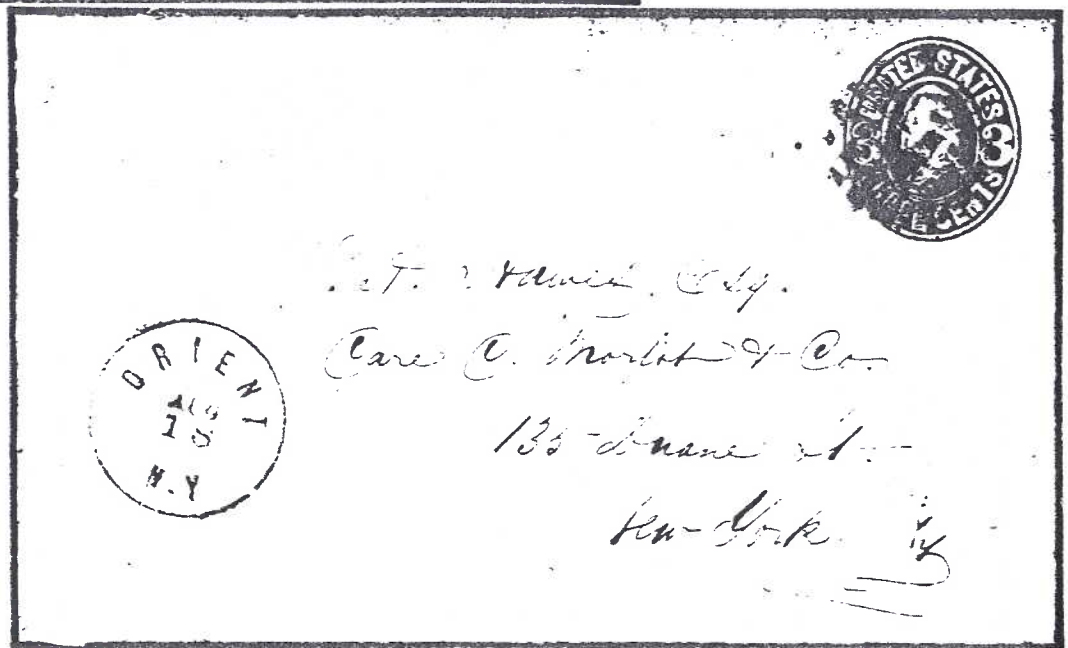 UNITED STATES
3 3
THREE CENTS
Esq.
Care C. & Co.
135 Duane St.
New York
ORIENT
AUG
N.Y